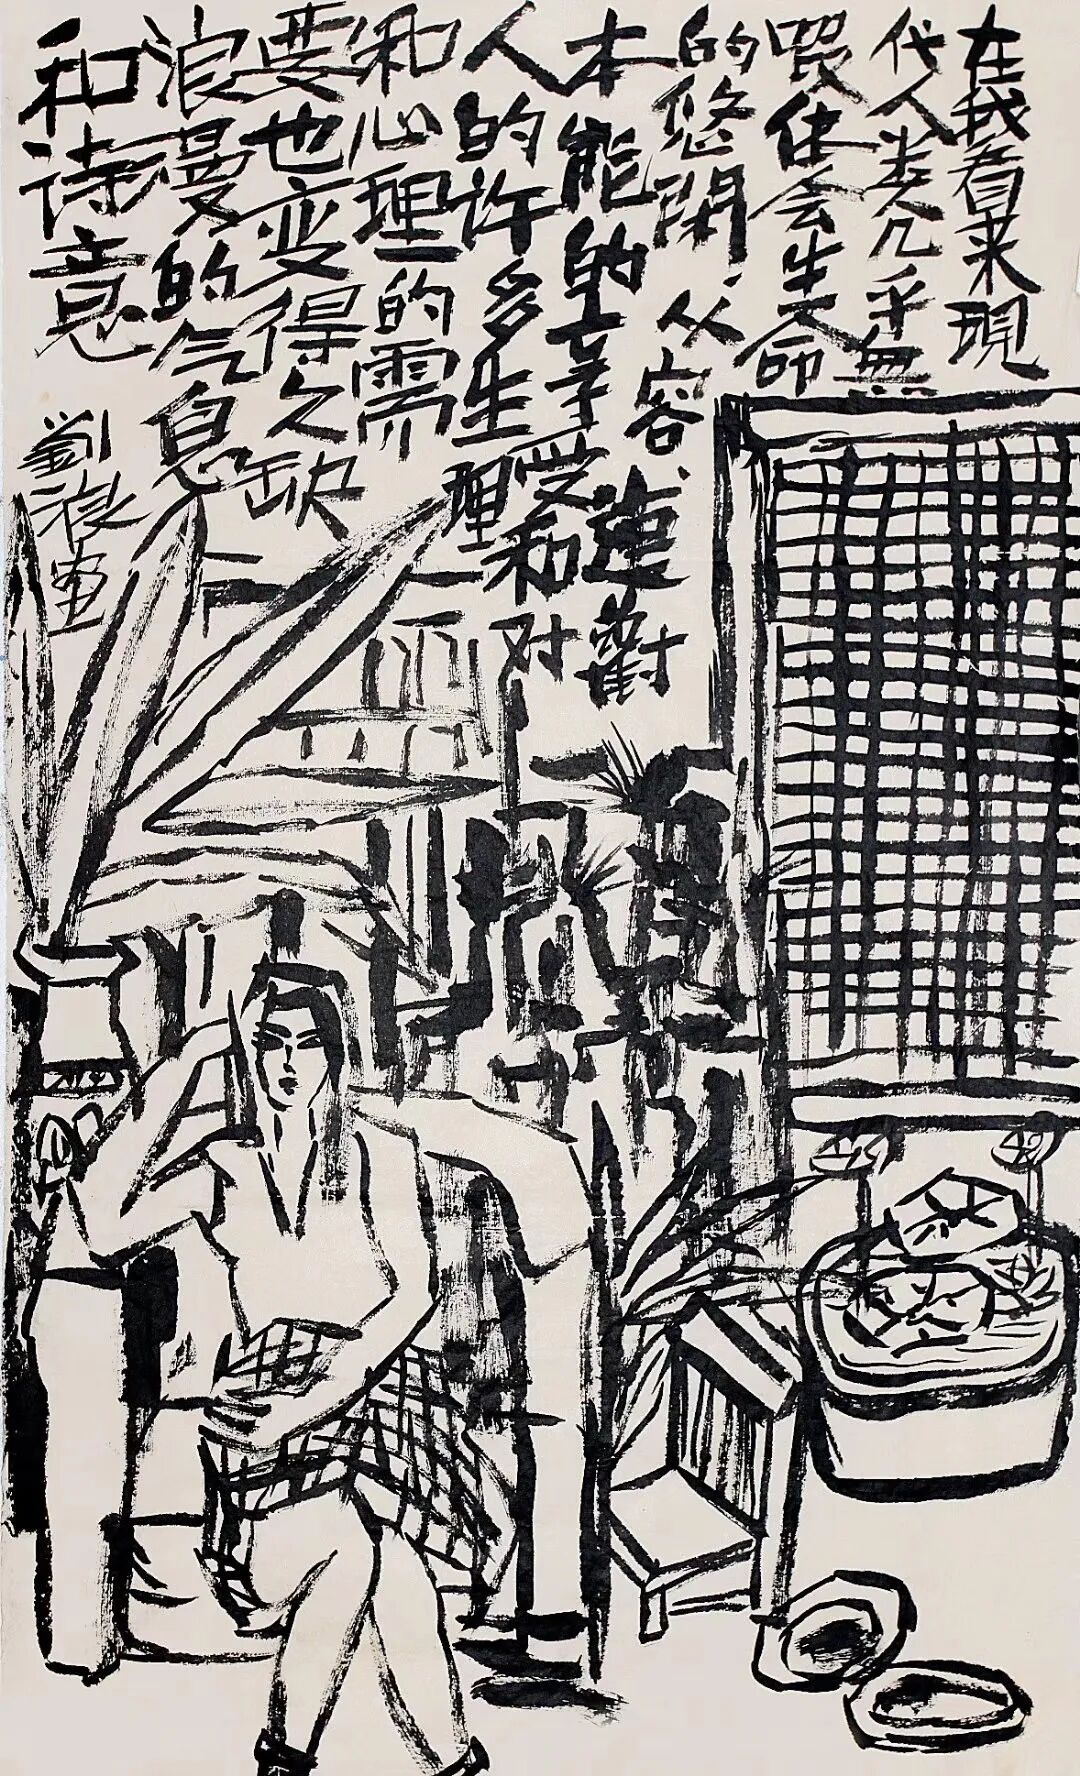 在我看来现
代人类几乎無
暇体会生命
的悠閑、从容、連對
本能的享受和对
人的许多生理
和心理的需
要也变得欠缺
浪漫的气息
和诗意
劉浪畫